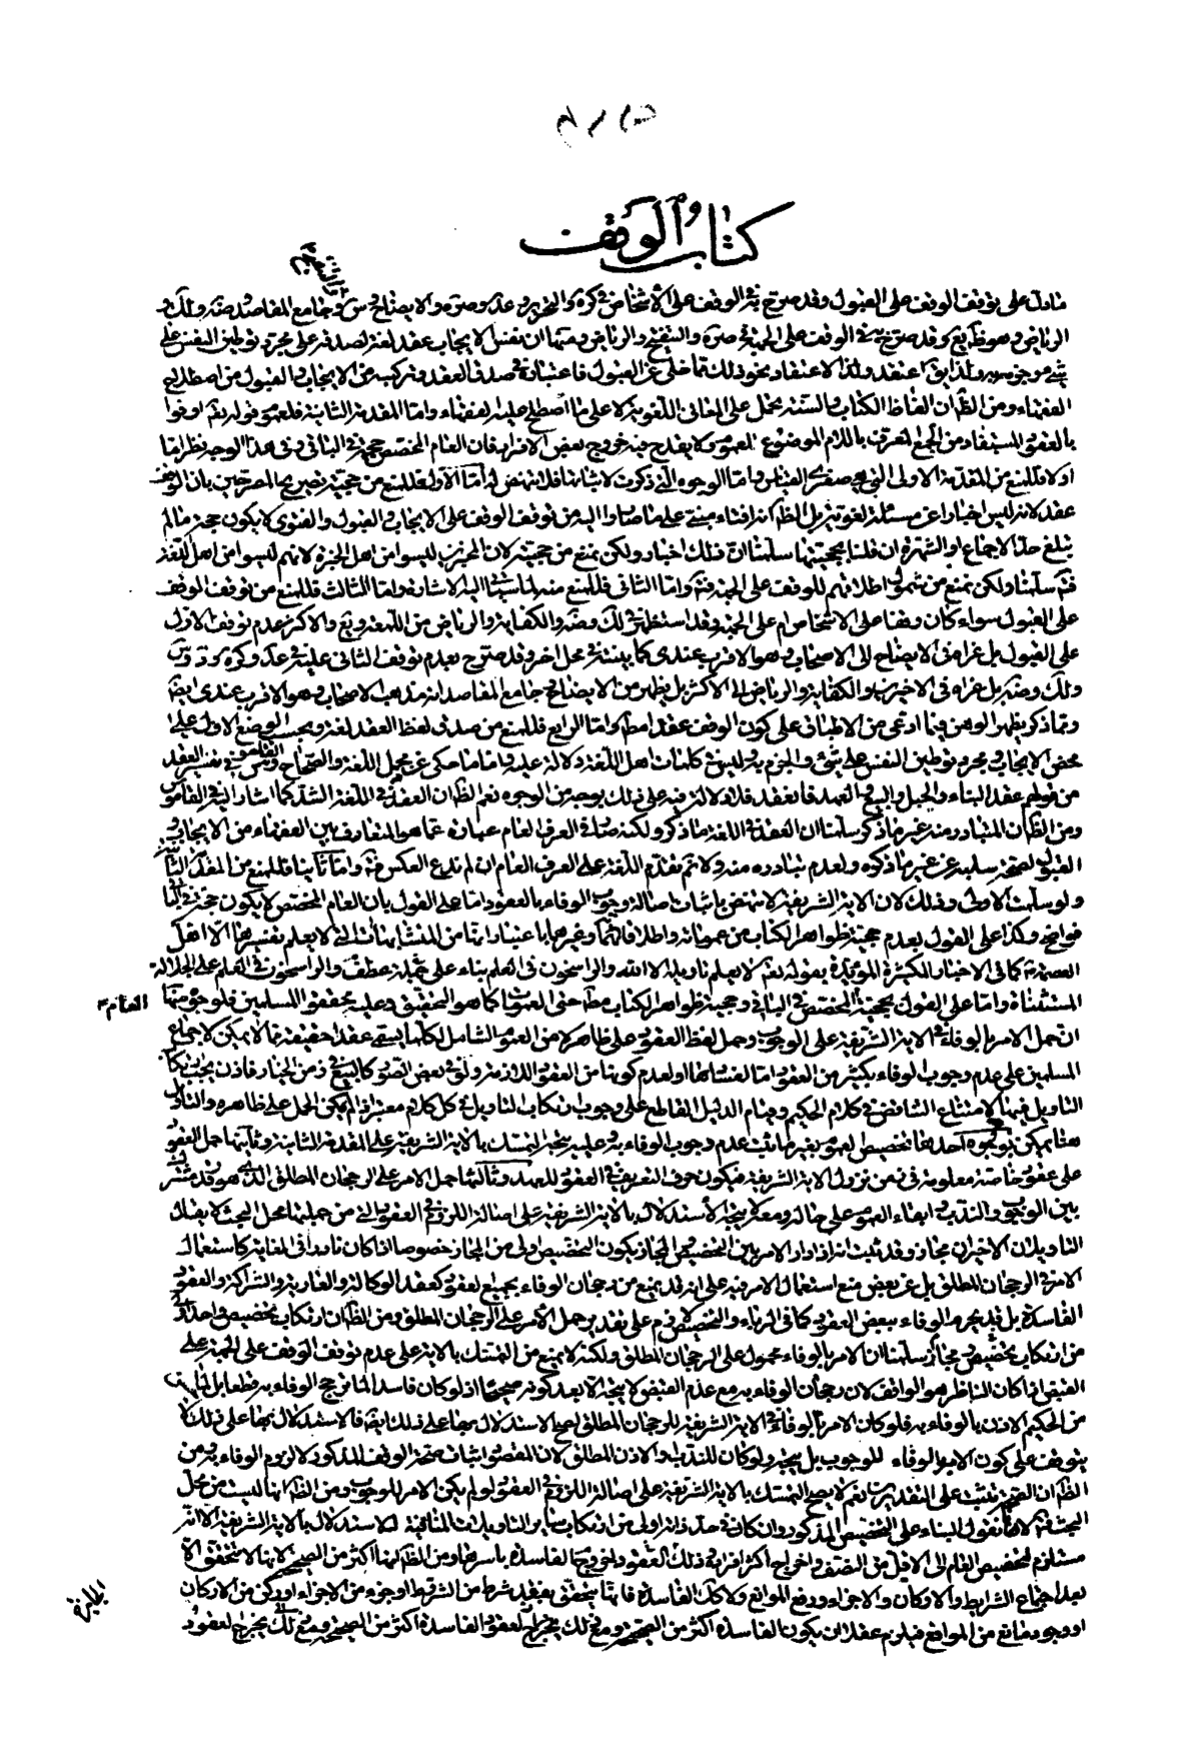 كتاب الوقف
ما دل على توقف الوقف على القبول وقد صرح به في الوقف على الأشخاص في كره والتحرير وعد وصره والايضاح وس وجامع المقاصد وضه ولك
الرياض وهو ظاهر وقد صرح به في الوقف على الجهة في صره والتنقيح والرياض ومنها ان نفس الايجاب عقد لغة لصدقه على مجرد توطين النفس على
شيء موجود ولذا يق اعتقد ولذا الاعتقاد بنحو ذلك مما خلى عن القبول فاعتباره في صدق العقد وتركبه من الايجاب والقبول من اصطلاح
الفقهاء ومن الظ ان الفاظ الكتاب والسنة يحمل على المعانى اللغوية لا على ما اصطلح عليه الفقهاء واما المقدمة الثانية فلعموم قوله تعم اوفوا
بالعقود المستفاد من الجمع المعرف باللام الموضوع للعموم ولا يقدح فيه خروج بعض الافراد فان العام المخصص حجة في الباقى وفى هذا الوجه نظر اما
اولا فللمنع من المقدمة الاولى التى هى صغرى القياس واما الوجوه التى ذكرت لاثباتها فلا تنهض له اما الاول فللمنع من حجية تصريح المصرحين بان الوقف
عقد لانه ليس اخبارا عن مسئلة لغوية بل الظ انه افتاء مبنى على ما صاروا اليه من توقف الوقف على الايجاب والقبول والفتوى لا يكون حجة ما لم
يبلغ حد الاجماع او الشهرة ان قلنا بحجيتها سلمنا ان ذلك اخبار ولكن نمنع من حجيته لان المخبرين ليسوا من اهل الخبرة لانهم ليسوا من اهل اللغة
فت سلمنا ولكن نمنع من شمول اطلاقهم للوقف على الجهة فت واما الثانى فللمنع منه لما سيشار اليه الاشارة واما الثالث فللمنع من توقف الوقف
على القبول سواء كان وقفا على الاشخاص ام على الجهة وقد استظهر في لك وضه والكفاية والرياض من اللمعة ويع والاكثر عدم توقف الاول
على القبول بل عزا في الايضاح الى الاصحاب وهو الاقرب عندى كما بينته في محل اخر وقد صرح بعدم توقف الثانى عليه في عد وكره
ولك وضه بل عزاه في الاخيرين والكفاية والرياض الى الاكثر بل يظهر من الايضاح وجامع المقاصد انه مذهب الاصحاب وهو الاقرب عندى ايضا
ومما ذكر يظهر الوهن فيما ادعى من الاطباق على كون الوقف عقدا مط واما الرابع فللمنع من صدق لفظ العقد لغة وبحسب الوضع الاول على
محض الايجاب ومجرد توطين النفس على شيء والجزم به وليس في كلمات اهل اللغة دلالة عليه واما ما حكى عن مجمل اللغة والصحاح والقاموس في تفسير العقد
من قولهم عقد البناء والحبل والبيع والعهد فانعقد فلا دلالة فيه على ذلك بوجه من الوجوه نعم الظ ان العقد في اللغة الشد كما اشار اليه في القاموس
ومن الظ ان المتبادر منه غير ما ذكر سلمنا ان العقد في اللغة ما ذكر ولكنه صار في العرف العام عبارة عما هو المتعارف بين الفقهاء من الايجاب و
القبول لصحة سلبه عن غير ما ذكروه ولعدم تبادره منه ولا تم تقدم اللغة على العرف العام ان لم ندع العكس فت واما ثانيا فللمنع من المقدمة الثانية
ولو سلمت الاولى وذلك لان الاية الشريفة لا تنهض باثبات اصالة وجوب الوفاء بالعقود اما على القول بان العام المخصص لا يكون حجة في الباقى
فواضح وكذا على القول بعدم حجية ظواهر الكتاب من عموماته واطلاقاتها وغيرهما باعتبار انها من المتشابهات التى لا يعلم تفسيرها الا اهل
العصمة كما في الاخبار الكثيرة المؤيدة بقوله تعم لا يعلم تاويله الا الله والراسخون فى العلم بناء على جملية عطف والراسخون في العلم على الجلالة
المستثناة واما على القول بحجية المخصص في الباقى وحجية ظواهر الكتاب مط حتى العمومات كما هو التحقيق وعليه محققو المسلمين فلوجوه منها
العام
ان حمل الامر بالوفاء في الاية الشريفة على الوجوب وحمل لفظ العقود على ظاهره من العموم الشامل لكلما يسمى عقدا حقيقة مما لا يمكن لاجماع
المسلمين على عدم وجوب الوفاء بكثير من العقود اما لفسادها او لعدم كونها من العقود اللازمة ولو في بعض الصور كالبيع في زمن الخيار فاذن يجب ارتكاب
التاويل فيها لامتناع التناقض في كلام الحكيم وقيام الدليل القاطع على وجوب ارتكاب التاويل في كل كلام معتبر لم يمكن الحمل على ظاهره والتاويل
هنا يمكن بوجوه احدها تخصيص العموم بغير ما ثبت عدم وجوب الوفاء به وعليه يتجه التمسك بالاية الشريفة على المقدمة الثانية وثانيها حمل العقود
على عقود خاصة معلومة في زمن نزول الاية الشريفة فيكون حرف التعريف في العقود للعهد وثالثها حمل الامر على الرجحان المطلق الذى هو قدر مشترك
بين الوجوب والندب وابقاء العموم على حاله ومعه لا يتجه الاستدلال بالاية الشريفة على اصالة اللزوم في العقود التى من جملتها محل البحث لا يقال
التاويلان الاخيران مجاز وقد ثبت انه اذا دار الامر بين التخصيص والمجاز يكون التخصيص اولى من المجاز خصوصا اذا كان نادرا فى الغاية كاستعمال
الامر في الرجحان المطلق بل عن بعض منع استعمال الامر فيه على انه قد يمنع من رجحان الوفاء بجميع العقود كعقد الوكالة والعارية والشراكة والعقود
الفاسدة بل قد يحرم الوفاء ببعض العقود كما فى الرباء والتخصيص لازم على تقدير حمل الامر على الرجحان المطلق ومن الظ ان ارتكاب تخصيص واحد اولى
من ارتكاب تخصيص ومجاز سلمنا ان الامر بالوفاء محمول على الرجحان المطلق ولكنه لا يمنع من التمسك بالاية على عدم توقف الوقف على الجهة على
القبض اذا كان الناظر هو الواقف لان رجحان الوفاء به مع عدم القبض لا يتجه الا بعد كونه صحيحا اذ لو كان فاسدا لما رجح الوفاء به قطعا بل
من الحكيم الاذن بالوفاء به فلو كان الامر بالوفاء في الاية الشريفة للرجحان المطلق لصح الاستدلال بها على ذلك ايضا فالاستدلال بها على ذلك لا
يتوقف على كون الامر بالوفاء للوجوب بل يتجه ولو كان للندب او الاذن المطلق لان المقصود اثبات صحة الوقف المذكور لا لزوم الوفاء به ومن
الظ ان الصحة يثبت على التقديرين نعم لا يصح التمسك بالاية الشريفة على اصالة اللزوم في العقود لو لم يكن الامر للوجوب ومن الظ انها ليست من محل
البحث لانا نقول البناء على التخصيص المذكور وان كان في حد ذاته اولى من ارتكاب سائر التاويلات المنافية للاستدلال بالاية الشريفة الا انه
مستلزم لتخصيص العام الى الاقل من النصف واخراج اكثر افراده وذلك لتعقد وخروج العقود الفاسدة باسرها ومن الظ انها اكثر من الصحيحة لانها لا تتحقق الا
بعد اجتماع الشرايط والاركان والاجزاء ورفع الموانع ولا كك الفاسدة فانها يتحقق بفقد شرط من الشروط او جزء من الاجزاء او ركن من الاركان
او وجود مانع من الموانع فيلزم عقلا ان يكون الفاسدة اكثر من الصحيحة ومع ذلك يخرج العقود الفاسدة اكثر من الصحيحة ومع ذلك يخرج العقود